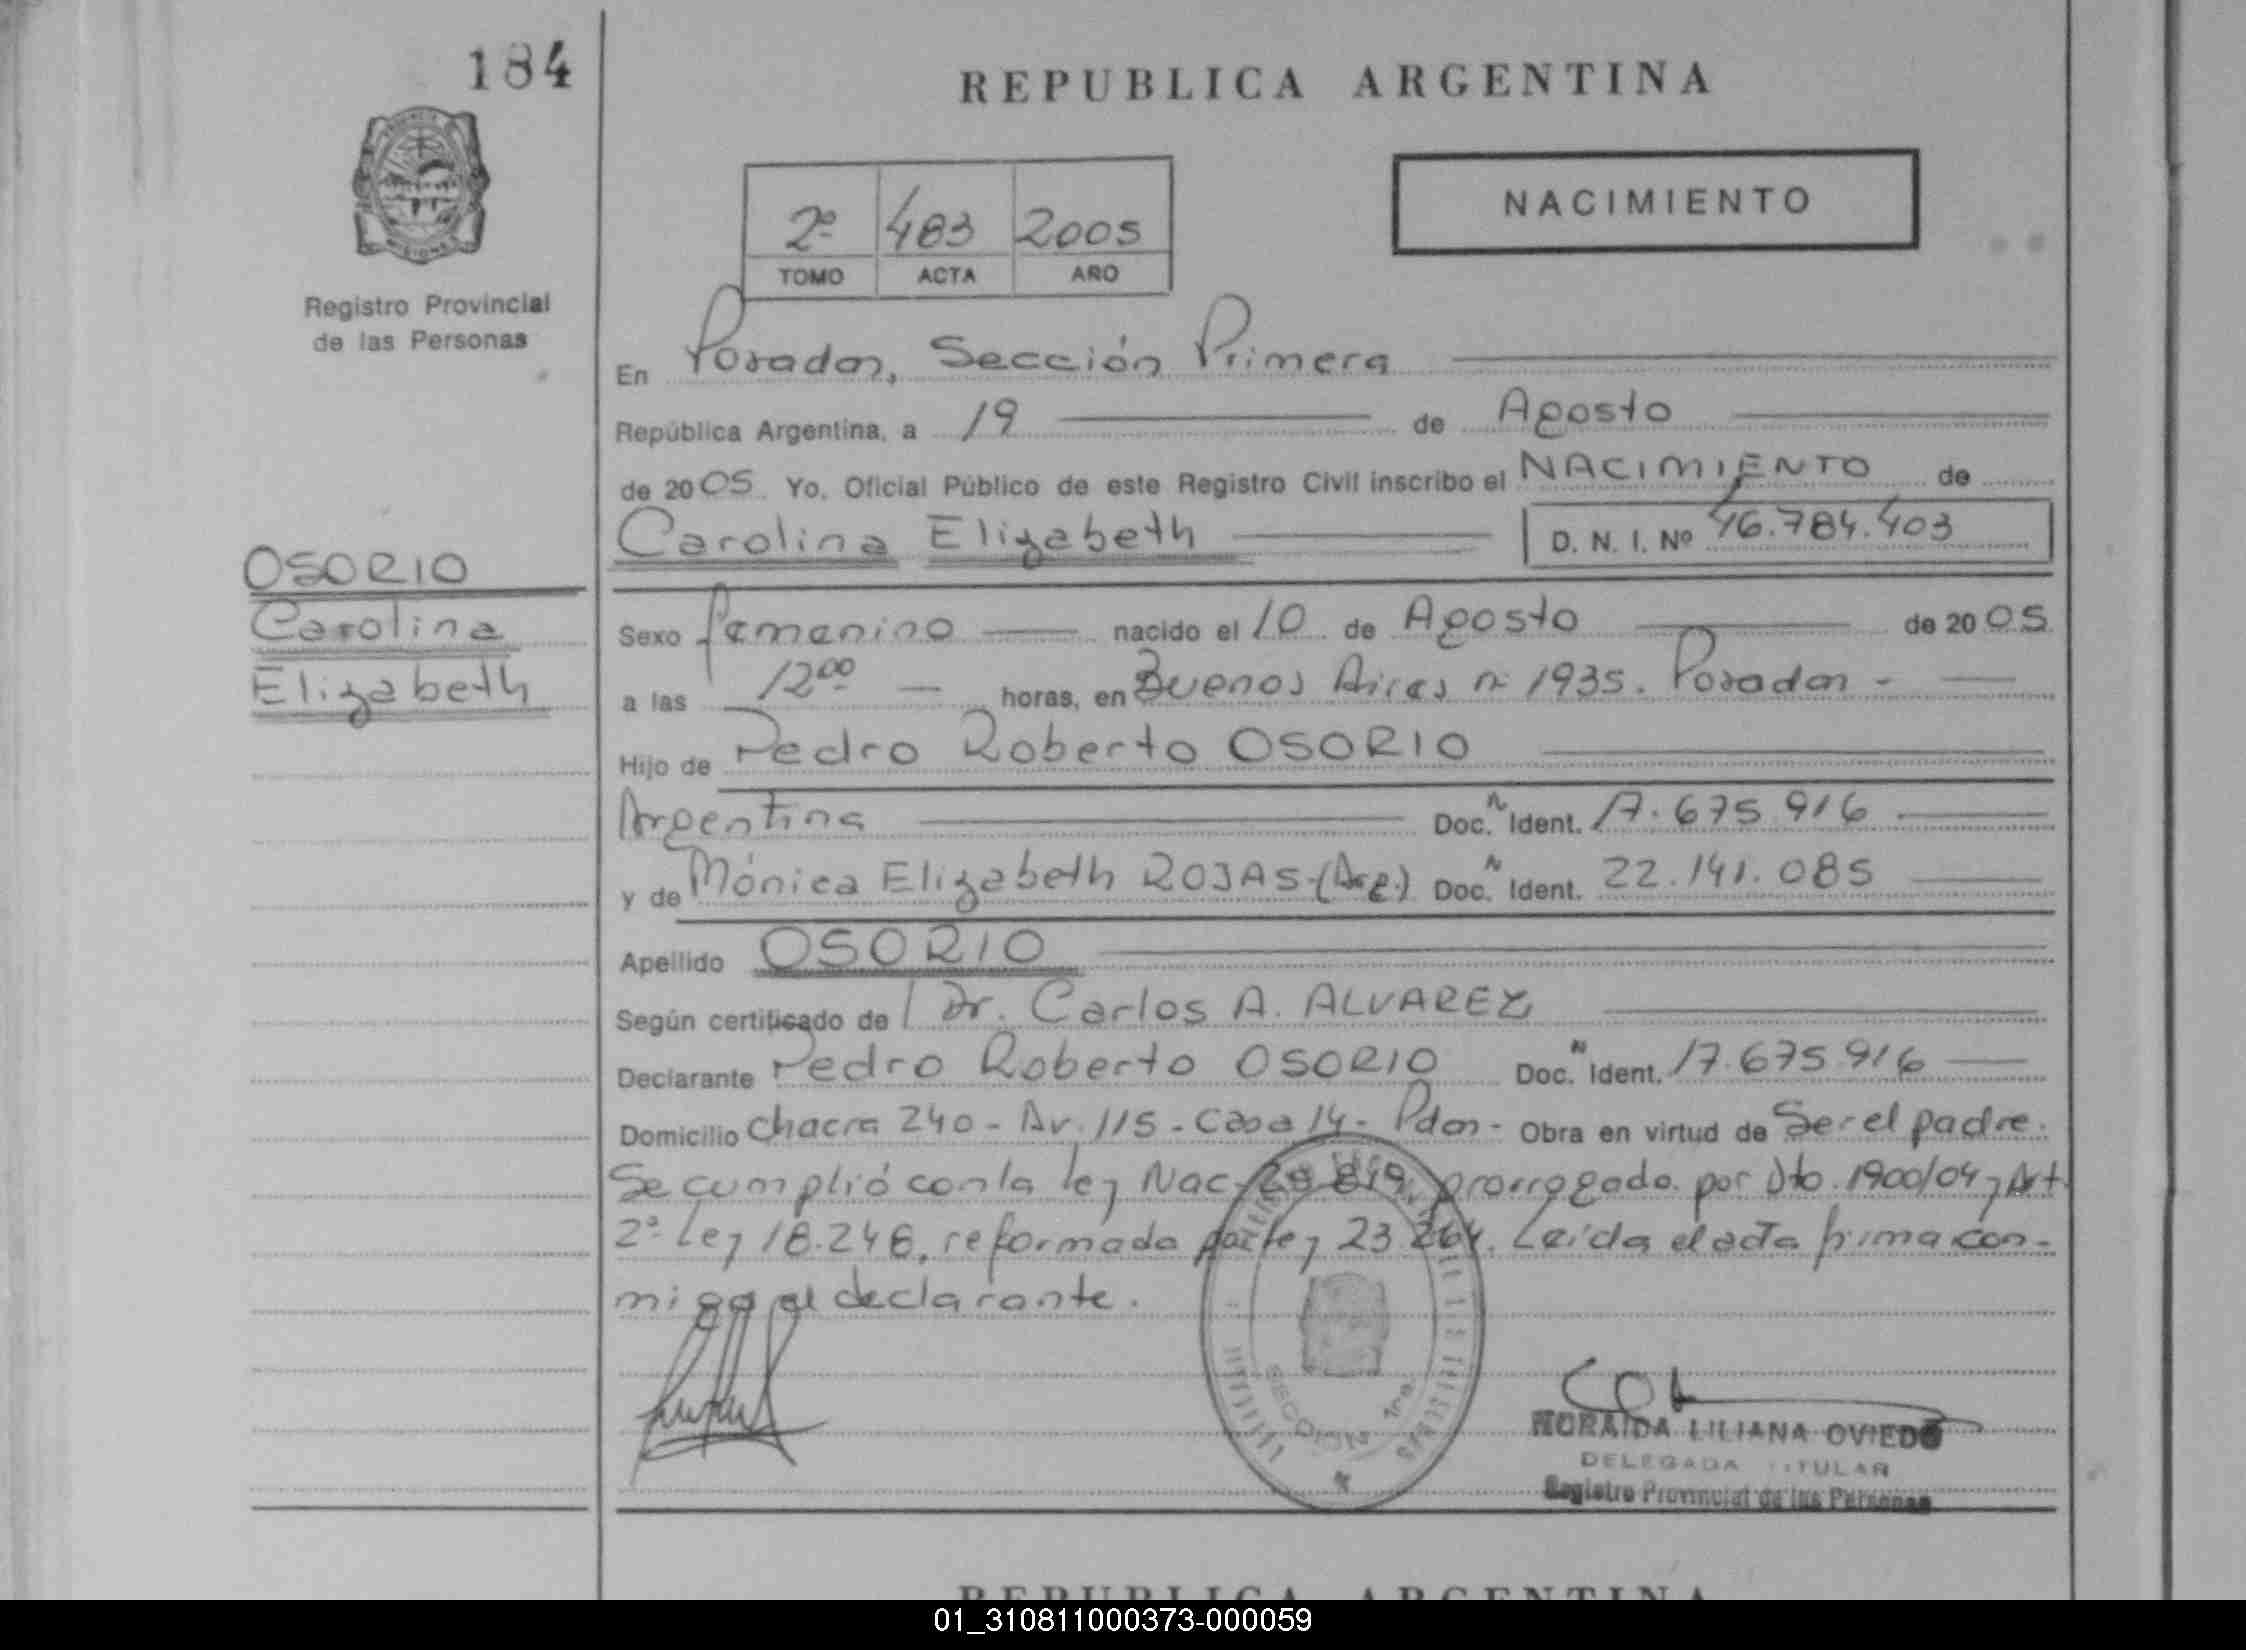 184
REPUBLICA ARGENTINA
NACIMIENTO
2º 483 2005
TOMO ACTA AÑO
Registro Provincial
de las Personas
En Posadas, Sección Primera
República Argentina, a 19 de Agosto
de 2005 Yo, Oficial Público de este Registro Civil inscribo el NACIMIENTO de
Carolina Elizabeth D. N. I. Nº 46.784.403
OSORIO
Carolina
Elizabeth
Sexo femenino nacido el 10 de Agosto de 2005
a las 12⁰⁰ horas, en Buenos Aires nº 1935. Posadas -
Hijo de Pedro Roberto OSORIO
Argentina Doc. Ident. 17.675.916
y de Mónica Elizabeth ROJAS-(Arg.) Doc. Ident. 22.141.085
Apellido OSORIO
Según certificado de Dr. Carlos A. ALVAREZ
Declarante Pedro Roberto OSORIO Doc. Ident. 17.675.916
Domicilio Chacra 240 - Av. 115 - Casa 14 - Pdas - Obra en virtud de Ser el padre.
Se cumplió con la ley Nac. prorrogado por Dto. 1900/04 y Art.
2º Ley 18.248, reformado por ley 23.264. Leída el acta firma con-
migo el declarante.
SECCION 1ra.
LILIANA OVIEDO
DELEGADA TITULAR
Registro Provincial de las Personas
REPUBLICA ARGENTINA
01_310811000373-000059